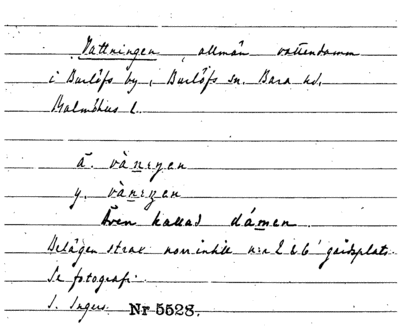 Vattningen, allmän vattendamm
i Burlöfs by, Burlöfs sn. Bara hd.
Malmöhus l.
ä. và
y. và
Även kallad dámen.
Belägen strax norr intill n:r 2 gårdsplats.
Se fotografi.
I. Ingers. Nr 5528.